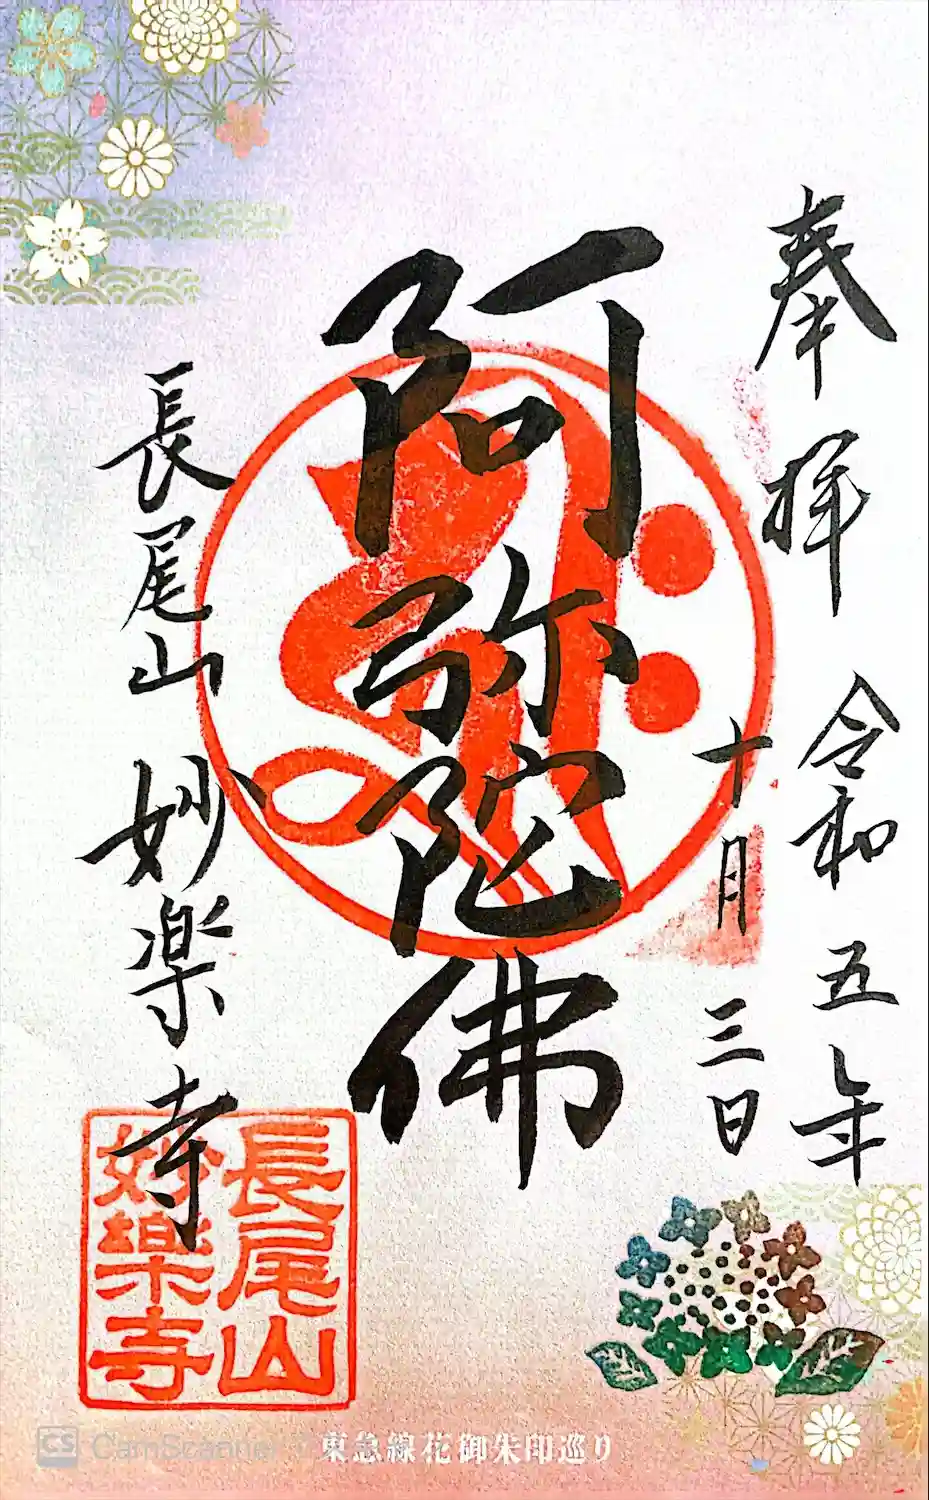 奉拝 令和五年
十月三日
阿弥陀佛
長尾山 妙楽寺
長尾山
妙樂寺
東急線花御朱印巡り
CS CamScanner